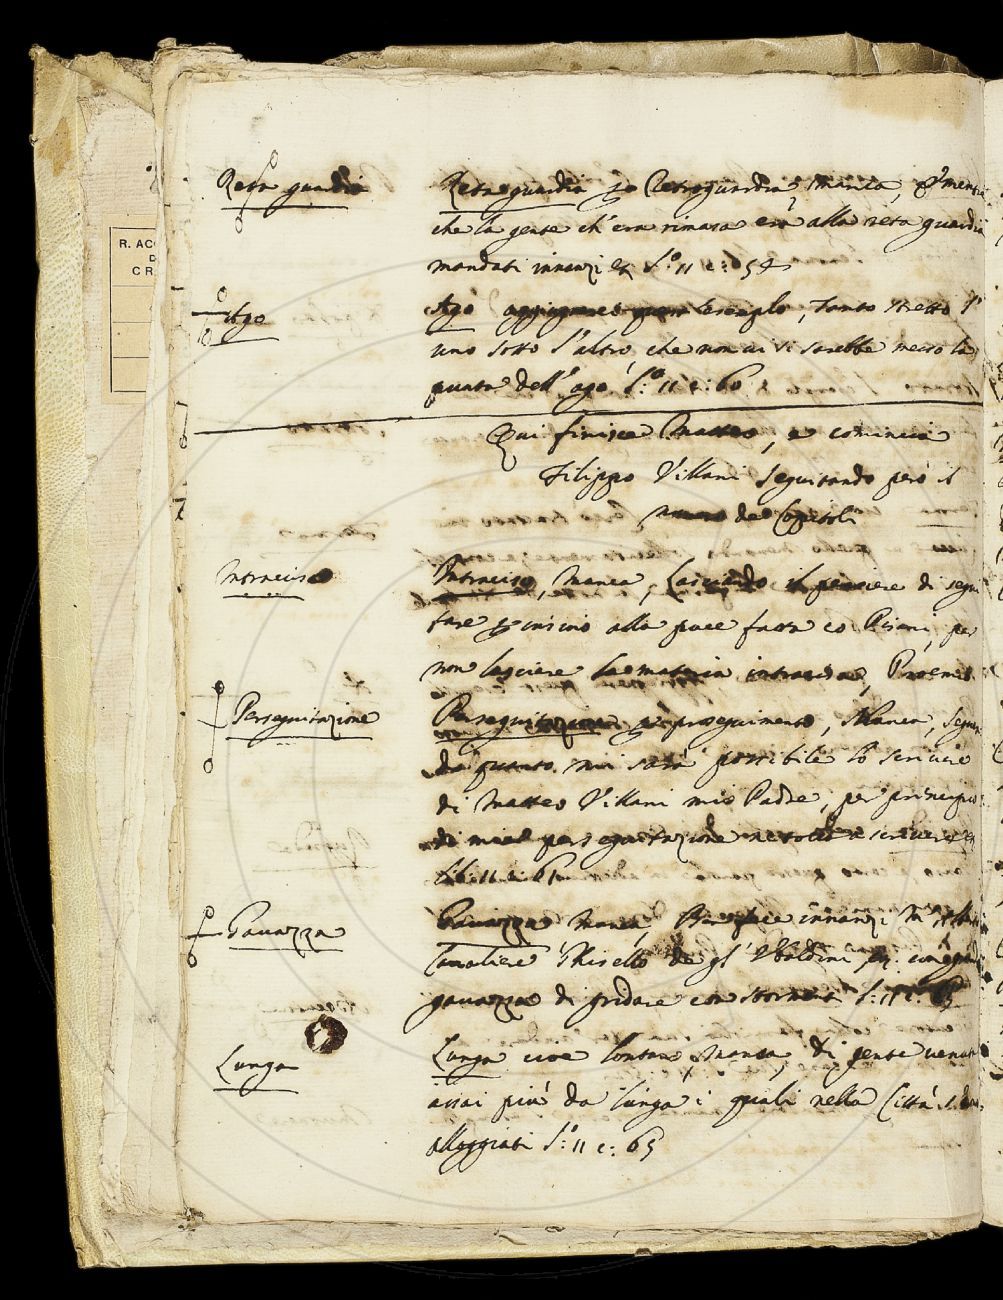 Reta guardia
Retaguardia p Retroguardia, Manca, e mentre
che la gente ch'era rimasa era alla reta guardia
mandati innanzi L.º 11 c: 54
Ago
Ago aggiugnere questo esemplo, tanto stretto l'
uno sotto l'altro, che non vi si sarebbe messo la
punta dell'ago L.º 11 c: 60
Qui finisce Matteo, e comincia
Filippo Villani seguitando però il
numero de Capitoli
Intraciso
Intraciso, Manca, Lasciando il pensiere di segui
tare insino alla pace fatta co Pisani, per
non lasciare la materia intracisa, Proem
Perseguitazione
Perseguitazione p proseguimento, Manca, Segui
di quanto mi sarà possibile lo scrivere
di Matteo Villani mio Padre, per principio
di mia perseguitazione scrivere
lib: 11 c: 61
Gavazza
Gavazza Manca, innanzi M.
Cavaliere Ghisello de gl'Ubaldini, con gran
gavazza di gridare con stormenti L: 11 c: 63
Lunga
Lunga cioè lontano, Manca, di gente venuta
assai più da lunga i quali nella Città
alloggiati L.º 11 c: 65
R. ACC
D
CR